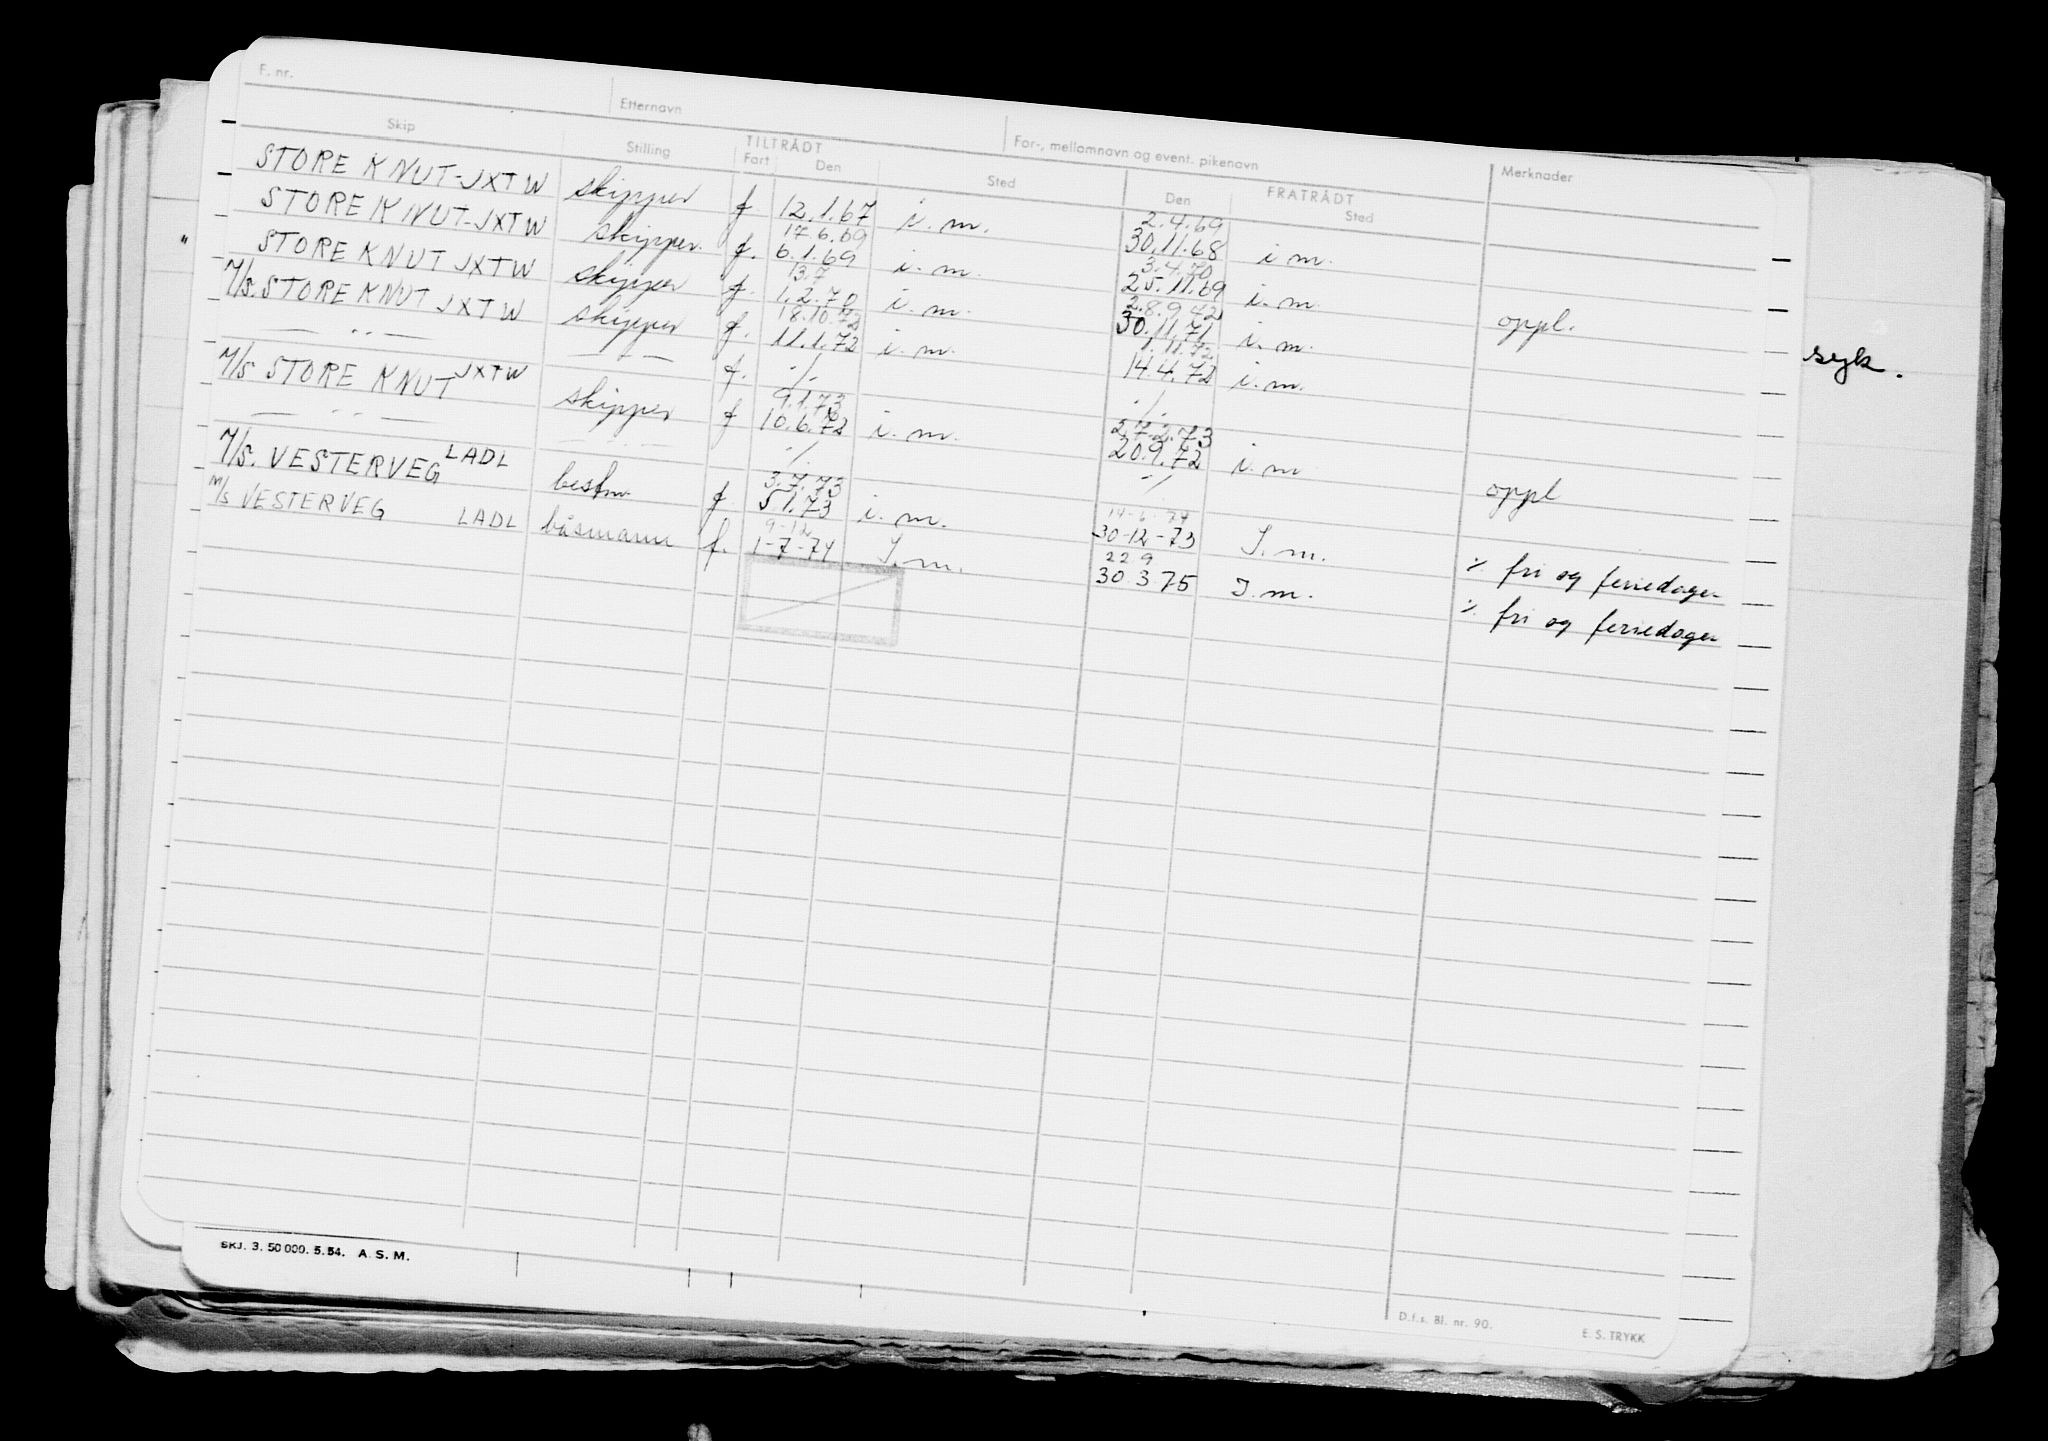 F. nr. Etternavn For-, mellomnavn og event. pikenavn
Skip Stilling TILTRÅDT FRATRÅDT Merknader
Fart Den Sted Den Sted
STORE KNUT-JXTW skipper f. 12.1.67 i. m. 2.4.69
30.11.68 i m.
STORE KNUT-JXTW skipper. f. 17 6.69
6.1.69 i. m. 3.4.70
25.11.69 i. m.
" STORE KNUT JXTW skipper f. 13.7
1.2.70 i. m. 30.11.71 i. m. oppl.
M/s. STORE KNUT JXTW skipper f. 18.10.72
11.1.72 i. m. 1.11.72
14.4.72 i. m. syk.
— " — — " — f. ./.
M/s STORE KNUT JXTW skipper f 9.1.73
10.6.72 i. m. ./.
2.7.2.73
20.9.72 i. m
— " — — " — ./. ./. oppl
M/s. VESTERVEG LADL bestm. f. 3.7.73
5.1.73 i. m. 14-6-74
30-12-73 I. m. ./. fri og feriedager
M/s VESTERVEG LADL båsmann f. 9-12
1-7-74 I. m. 22 9
30.3.75 I. m. ./. fri og feriedager
SKJ. 3. 50 000. 5.54. A. S. M.
D.f.s. Bl. nr. 90. E. S. TRYKK